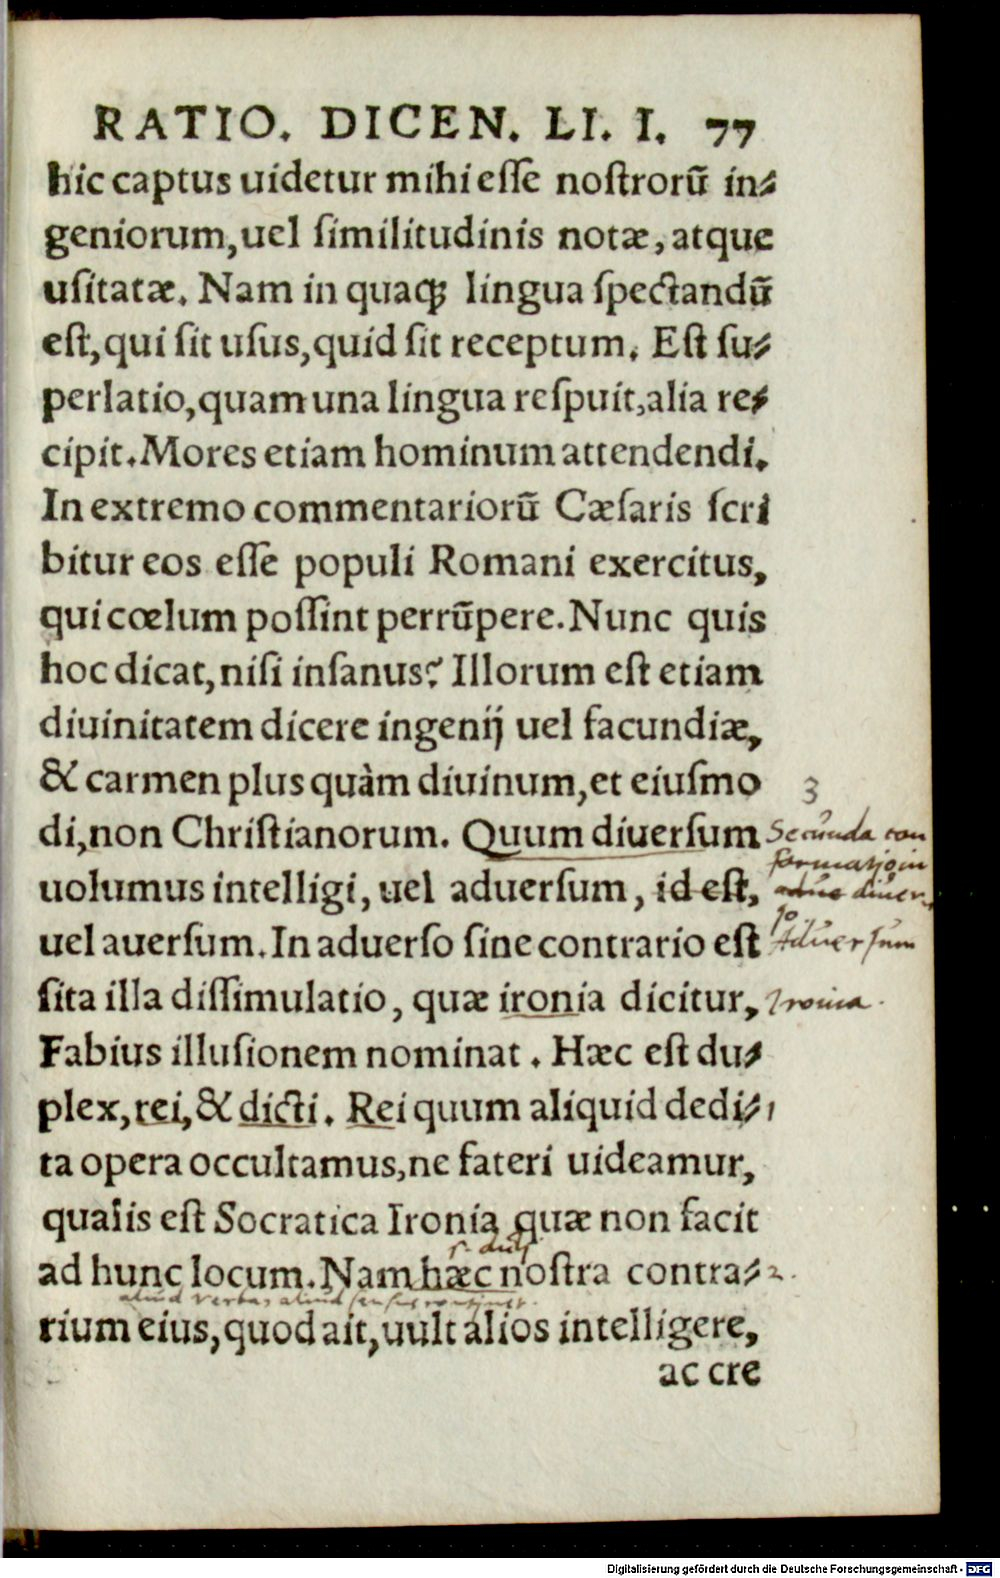 RATIO. DICEN. LI. I. 77
hic captus uidetur mihi eſſe noſtrorū in⸗
geniorum, uel ſimilitudinis notæ, atque
uſitatæ. Nam in quaqꝫ lingua ſpectandū
eſt, qui ſit uſus, quid ſit receptum. Eſt ſu⸗
perlatio, quam una lingua reſpuit, alia re⸗
cipit. Mores etiam hominum attendendi.
In extremo commentariorū Cæſaris ſcri
bitur eos eſſe populi Romani exercitus,
qui cœlum poſſint perrūpere. Nunc quis
hoc dicat, niſi inſanus? Illorum eſt etiam
diuinitatem dicere ingenij uel facundiæ,
& carmen plus quàm diuinum, et eiuſmo
3
di, non Chriſtianorum. Quum diuerſum
Secūnda con
formatio in
uolumus intelligi, uel aduerſum, id eſt,
diuer
uel auerſum. In aduerſo ſine contrario eſt
Aduerſum
ſita illa diſſimulatio, quæ ironia dicitur,
Ironia.
Fabius illuſionem nominat. Hæc eſt du⸗
plex, rei, & dicti. Rei quum aliquid dedi⸗
1
ta opera occultamus, ne fateri uideamur,
qualis eſt Socratica Ironia quæ non facit
ad hunc locum. Nam hæc noſtra contra⸗
2.
aliud verbas aliud
rium eius, quod ait, uult alios intelligere,
ac cre
Digitalisierung gefördert durch die Deutsche Forschungsgemeinschaft - DFG